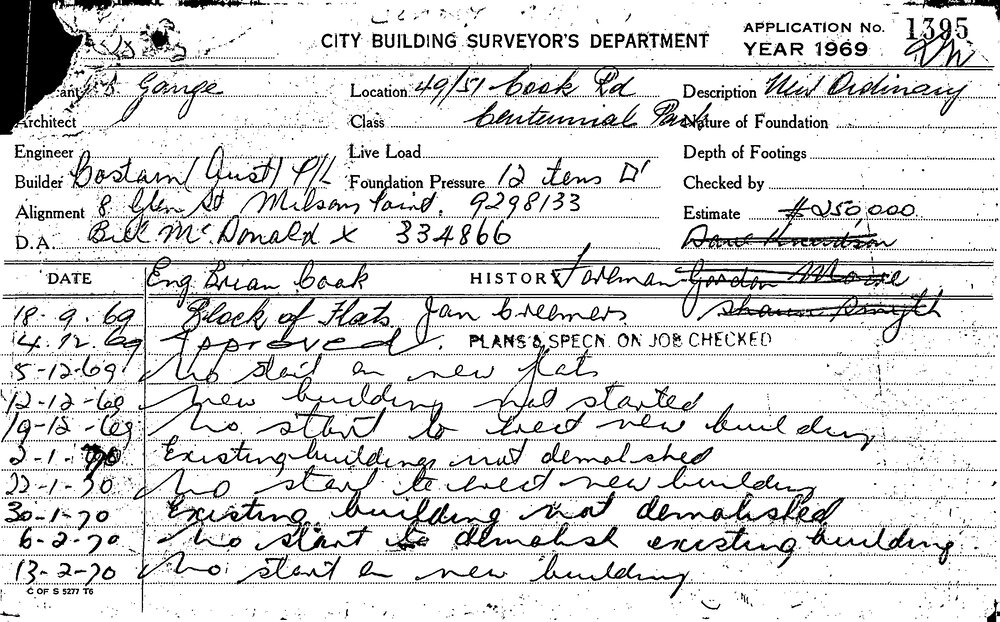 CITY BUILDING SURVEYOR'S DEPARTMENT APPLICATION No. 1395
YEAR 1969
Gange Location 49/51 Cook Rd Description New Ordinary
Architect Class Centennial Park Nature of Foundation
Engineer Live Load Depth of Footings
Builder Costain (Aust) P/L Foundation Pressure 12 tens □' Checked by
Alignment 8 Glen St Milsons Point. 9298133 Estimate $250,000.
D.A. Bill McDonald x 334866
DATE Eng Brian Cook HISTORY Foreman Gordon
18-9-69 Block of Flats Jan Creemers Shaun Smyth
4.12.69 Approved. PLANS & SPECN. ON JOB CHECKED
5-12-69 No start on new flats
12-12-69 New building not started
19-12-69 No start to erect new building
2-1-70 Existing buildings not demolished
22-1-70 No start to erect new building
30-1-70 Existing building not demolished
6-2-70 No start to demolish existing building.
13-2-70 No start on new building
C OF S 5277 T6